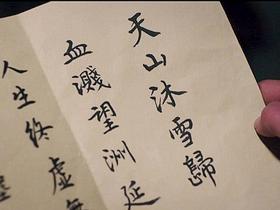 天山沐雪歸
血濺望洲延
人生終虛無